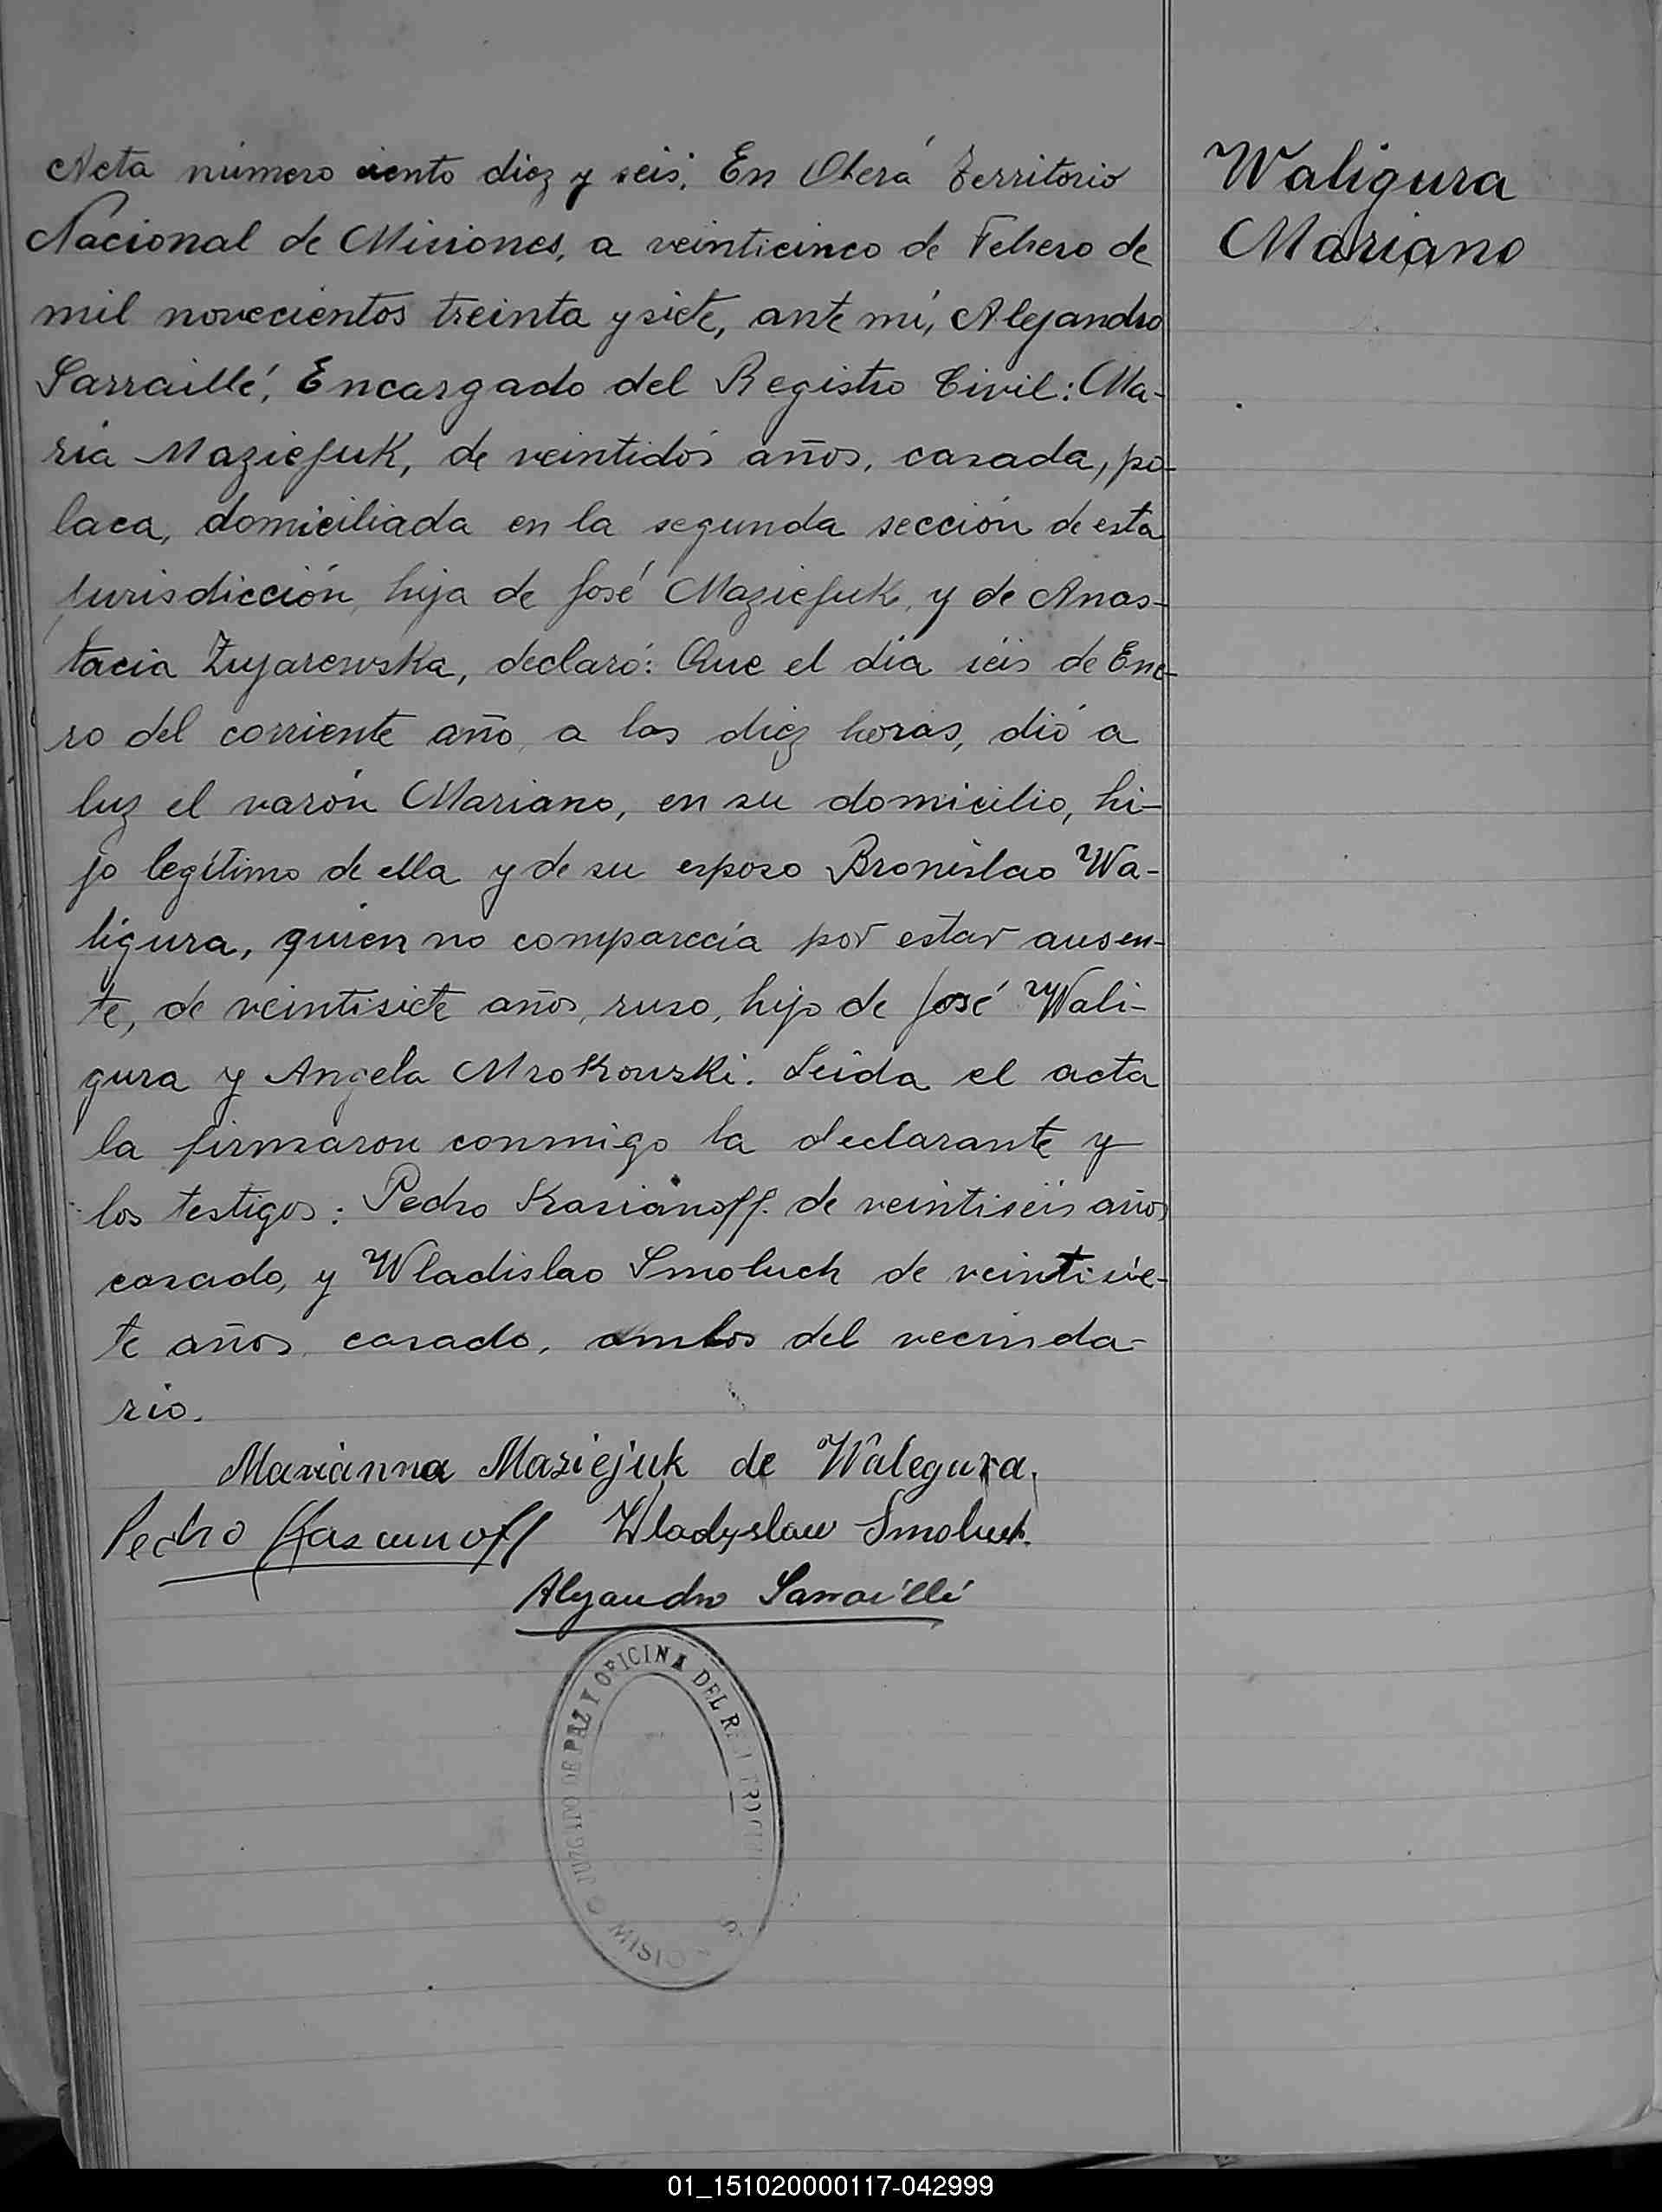 Acta número ciento diez y seis. En Oberá Territorio
Nacional de Misiones, a veinticinco de Febrero de
mil novecientos treinta y siete, ante mí, Alejandro
Sarraillé, Encargado del Registro Civil: Ma-
ría Maziejuk, de veintidós años, casada, po-
laca, domiciliada en la segunda sección de esta
jurisdicción, hija de José Maziejuk, y de Anas-
tacia Zujarewska, declaró: Que el día seis de Ene-
ro del corriente año, a las diez horas, dió a
luz el varón Mariano, en su domicilio, hi-
jo legítimo de ella y de su esposo Bronislao Wa-
ligura, quien no comparecía por estar ausen-
te, de veintisiete años, ruso, hijo de José Wali-
gura y Angela Mrokowski. Leída el acta
la firmaron conmigo la declarante y
los testigos: Pedro Kasianoff. de veintiséis años
casado, y Wladislao Smoluch de veintisie-
te años, casado, ambos del vecinda-
rio.
Marianna Masiejuk de Walegura.
Pedro Kasianoff Wladyslaw Smoluch.
Alejandro Sarraillé
JUZGADO DE PAZ Y OFICINA DEL
Waligura
Mariano
01_151020000117-042999